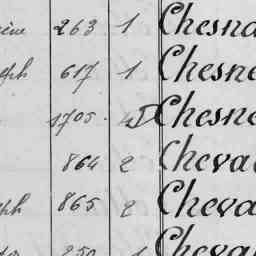 263 1 Chesn
617 1 Chesne
1705 Chesne
864 2 Cheva
865 2 Cheva
250 1 Cheva